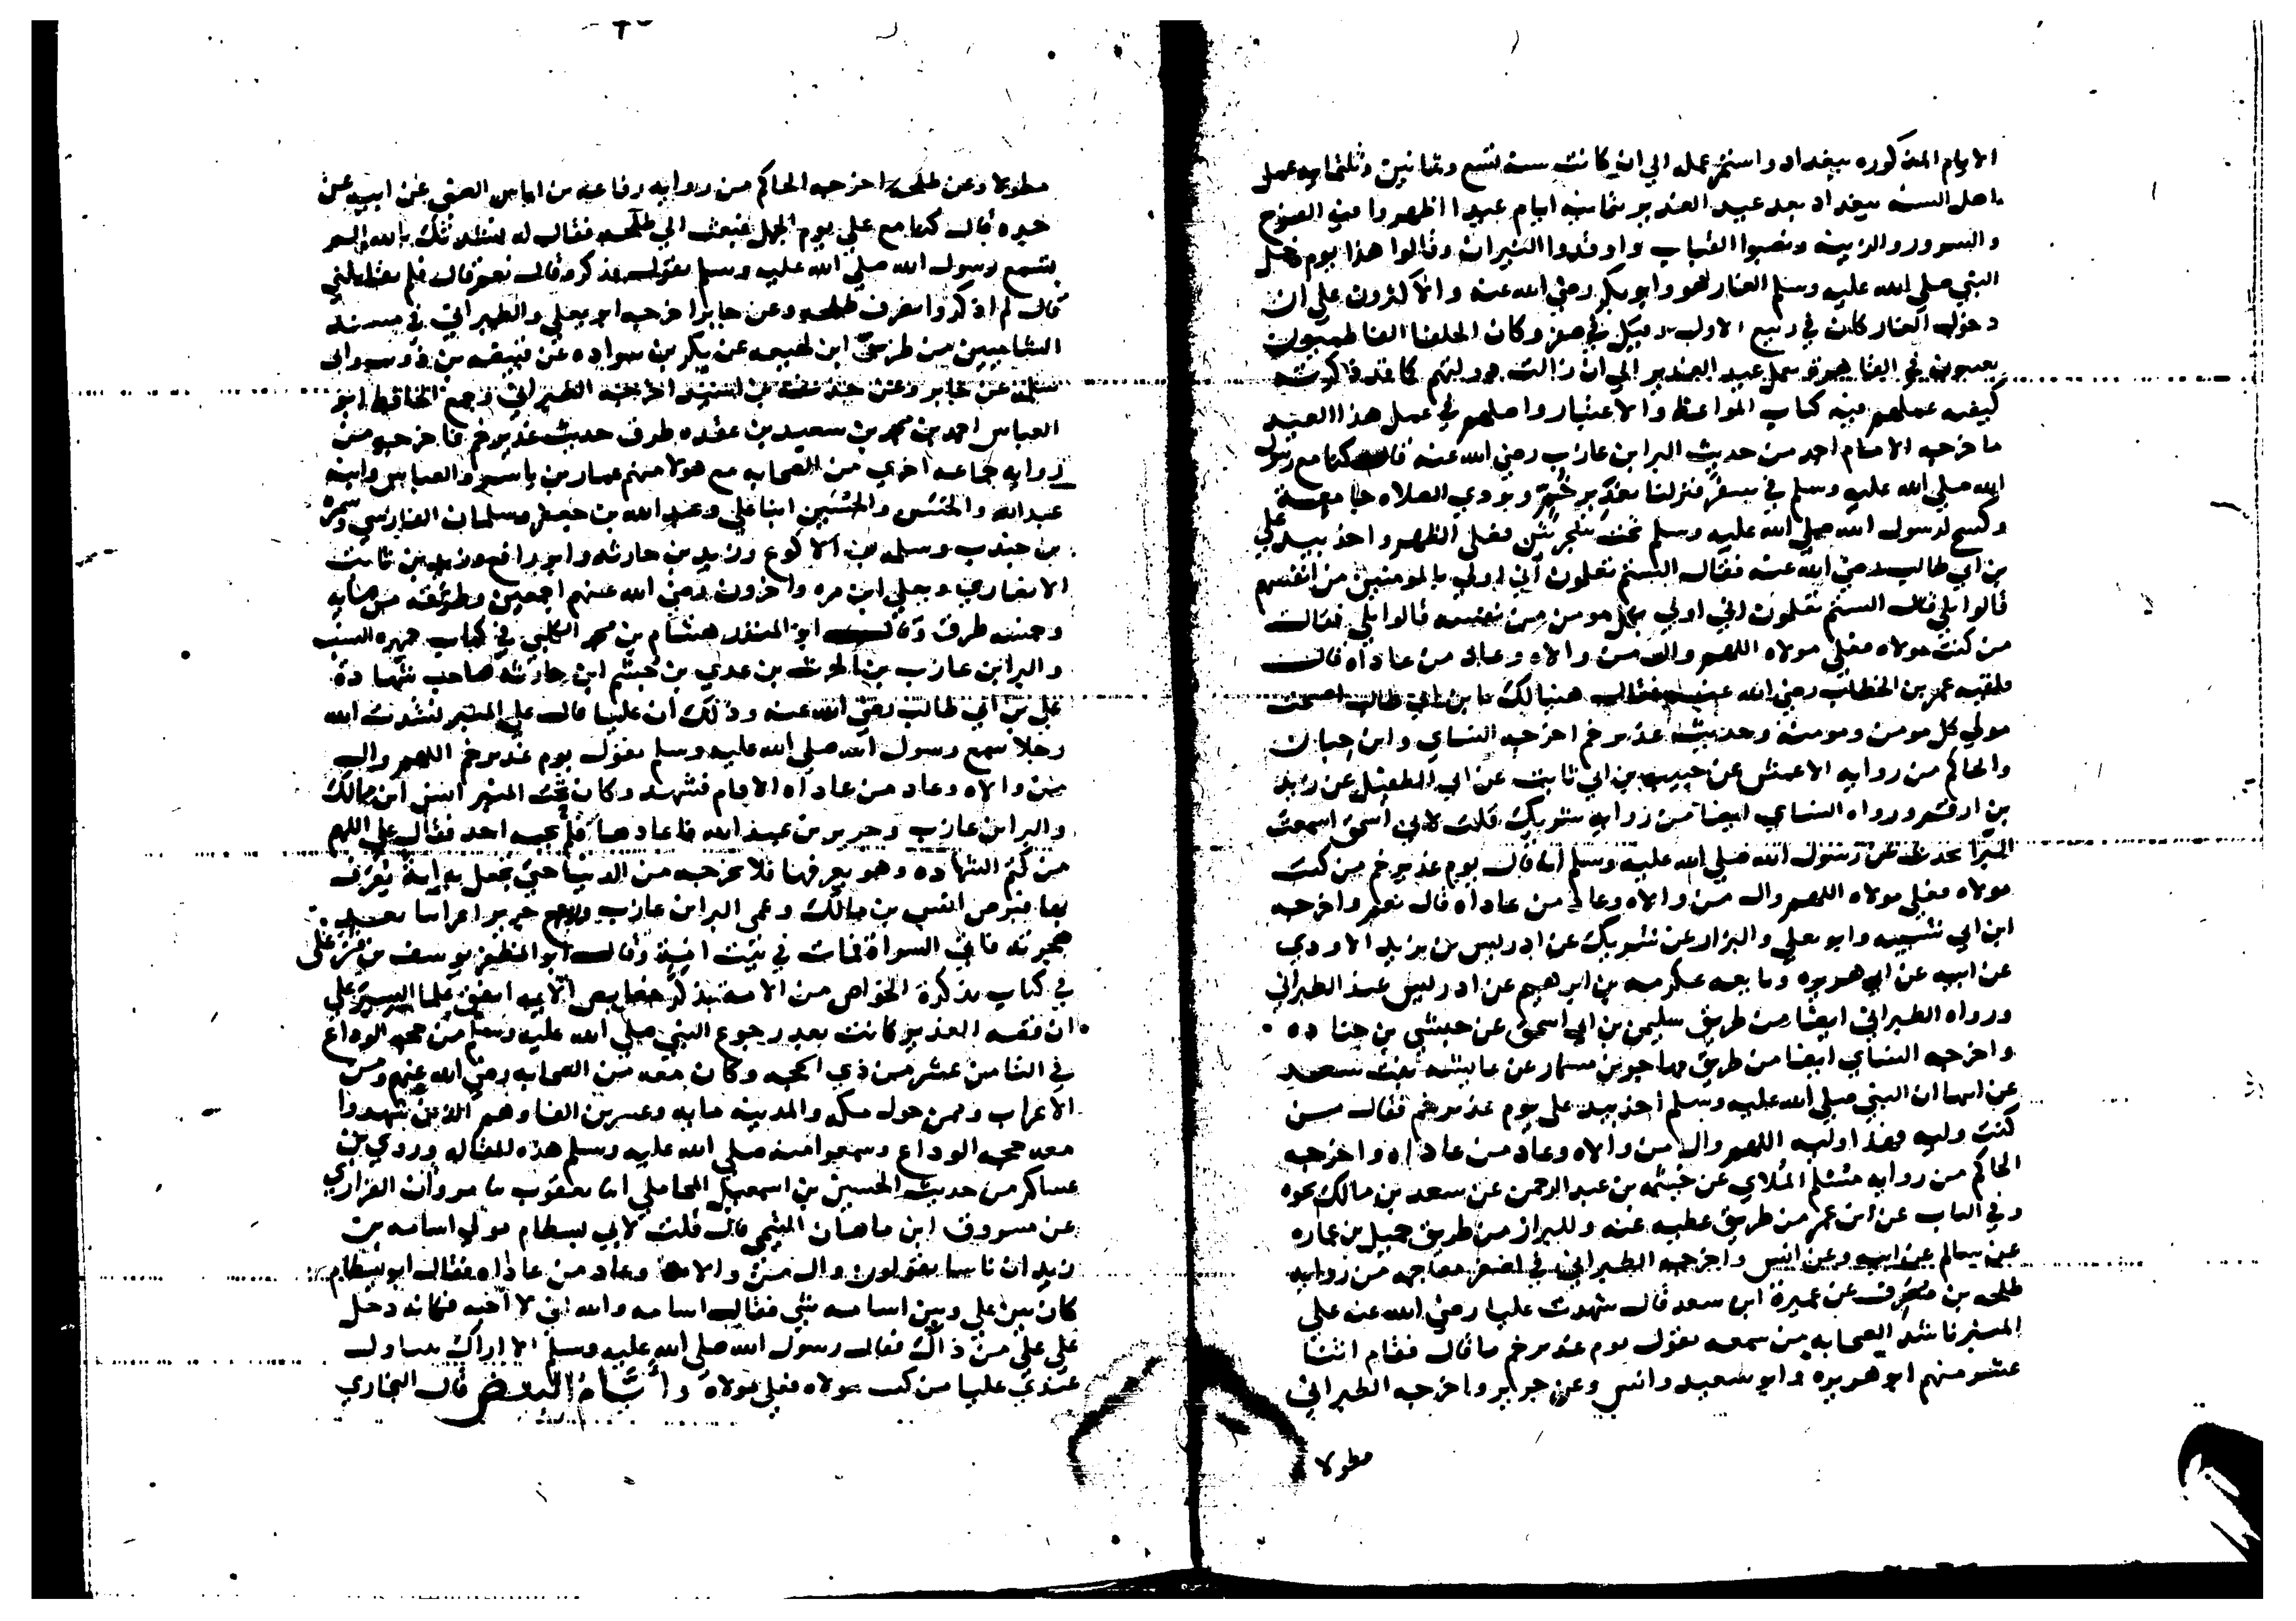 الايام المذكوره ببغداد واستمر عمله الي ان كانت سنه تسع وثمانين وثلثمايه عمل
اهل السنه ببغداد بعد عيد الغدير بثمانيه ايام عيدا اظهروا فيه
والسرور والزينه ونصبوا القباب واوقدوا النيران وقالوا هذا يوم دخل
النبي صلي الله عليه وسلم الغار هو وابو بكر رضي الله عنه والاكثرون علي ان
دخول الغار كان في ربيع الاول وقيل في صفر وكان الخلفا الفاطميون
يعملون في القاهره عيد الغدير الي ان زالت دولتهم كما قد ذكرت
كيفيه عملهم فيه كتاب المواعظ والاعتبار واصلهم في عمل هذا العيد
ما خرجه الامام احمد من حديث البرا بن عازب رضي الله عنه قال كنا مع رسول
الله صلي الله عليه وسلم في سفر فنزلنا بغدير خم ونودي الصلاه جامعة
وكسح لرسول الله صلي الله عليه وسلم تحت شجرتين فصلي الظهر واخذ بيد علي
بن ابي طالب رضي الله عنه فقال الستم تعلمون اني اولي بالمومنين من انفسهم
قالوا بلي قال الستم تعلمون اني اولي بكل مومن من نفسه قالوا بلي فقال
من كنت مولاه فعلي مولاه اللهم وال من والاه وعاد من عاداه قال
فلقيه عمر بن الخطاب رضي الله عنه فقال هنيا لك يا بن ابي طالب اصبحت
مولي كل مومن ومومنه وحديث غدير خم اخرجه النساي وابن حبان
والحاكم من روايه الاعمش عن حبيب بن ابي ثابت عن ابي الطفيل عن زيد
بن ارقم ورواه النساي ايضا من روايه شريك قلت لابي اسحق اسمعت
البرا يحدث عن رسول الله صلي الله عليه وسلم انه قال يوم غدير خم من كنت
مولاه فعلي مولاه اللهم وال من والاه وعاد من عاداه قال نعم واخرجه
ابن ابي شيبه وابو يعلي والبزار عن شريك عن ادريس بن يزيد الاودي
عن ابيه عن ابي هريره وتابعه عكرمه بن ابرهيم عن ادريس عند الطبراني
ورواه الطبراني ايضا من طريق سليمن بن ابي اسحق عن حبشي بن جناده
واخرجه النساي ايضا من طريق مهاجر بن مسمار عن عايشه بنت سعد
عن ابيها ان النبي صلي الله عليه وسلم اخذ بيد علي يوم غدير خم فقال من
كنت وليه فهذا وليه اللهم وال من والاه وعاد من عاداه واخرجه
الحاكم من روايه مسلم الملاي عن خيثمه بن عبد الرحمن عن سعد بن مالك نحوه
وفي الباب عن ابن عمر من طريق عطيه عنه وللبزار من طريق جميل بن عماره
عن سالم عن ابيه وعن انس واخرجه الطبراني في اصغر معاجمه من روايه
طلحه بن مصرف عن عميرة ابن سعد قال شهدت عليا رضي الله عنه علي
المنبر ناشد الصحابه من سمعه يقول يوم غدير خم ما قال فقام اثنا
عشر منهم ابو هريره وابو سعيد وانس وعن جرير واخرجه الطبراني
مطولا
مطولا وعن طلحه اخرجه الحاكم من روايه رفاعه بن اياس الضبي عن ابيه عن
جده قال كنا مع علي يوم الجمل فبعث الي طلحه فقال له نشدتك بالله الم
تسمع رسول الله صلي الله عليه وسلم يقول فذكره قال نعم قال فلم تقاتلني
قال لم اذكر وانصرف طلحه وعن جابر اخرجه ابو يعلي والطبراني في مسند
الشاميين من طريق ابن لهيعه عن بكر بن سواده عن قبيصه بن ذويب وابي
سلمه عن جابر وعن حذيفه بن اسيد اخرجه الطبراني وجمع الحافظ ابو
العباس احمد بن محمد بن سعيد بن عقده طرق حديث غدير خم فاخرجه من
روايه جماعه اخري من الصحابه مع هولا منهم عمار بن ياسر والعباس وابنه
عبد الله والحسن والحسين ابنا علي وعبد الله بن جعفر وسلمان الفارسي وسمره
بن جندب وسلمه بن الاكوع وزيد بن حارثه وابو رافع وزيد بن ثابت
الانصاري ويعلي ابن مره واخرون رضي الله عنهم اجمعين وطرقه من مايه
وخمسه طرق وقال ابو المنذر هشام بن محمد الكلبي في كتاب جمهره النسب
والبرا بن عازب بن الحرث بن عدي بن جشم ابن حارثه صاحب شهادة
علي بن ابي طالب رضي الله عنه وذلك ان عليا قال علي المنبر نشدت الله
رجلا سمع رسول الله صلي الله عليه وسلم يقول يوم غدير خم اللهم وال
من والاه وعاد من عاداه الا قام فشهد وكان تحت المنبر انس ابن مالك
والبرا بن عازب وجرير بن عبد الله فاعادها فلم يجبه احد فقال علي اللهم
من كتم الشهاده وهو يعرفها فلا تخرجه من الدنيا حتي تجعل به اية يعرف
بها فبرص انس بن مالك وعمي البرا بن عازب ورجع جرير اعرابيا بعد
هجرته فاتي السراة فمات في بيت امه وقال ابو المظفر يوسف بن قزغلي
في كتاب تذكرة الخواص من الامه بذكر خصايص الايمه اتفق علما السير علي
ان قصه الغدير كانت بعد رجوع النبي صلي الله عليه وسلم من حجه الوداع
في الثامن عشر من ذي الحجه وكان معه من الصحابه رضي الله عنهم ومن
الاعراب وممن حول مكه والمدينه مايه وعشرين الفا وهم الذين شهدوا
معه حجه الوداع وسمعوا منه صلي الله عليه وسلم هذه المقاله وروي بن
عساكر من حديث الحسين بن اسمعيل المحاملي انا يعقوب نا مروان الفزاري
عن مسروق ابن ماهان التيمي قال قلت لابي بسطام مولي اسامه بن
زيد ان ناسا يقولون وال من والاه وعاد من عاداه فقال ابو بسطام
كان بين علي وبين اسامه شي فقال اسامه والله اني لا احبه فكانه دخل
علي علي من ذاك فقال رسول الله صلي الله عليه وسلم الا اراك تناول
عندي عليا من كنت مولاه فعلي مولاه قال البخاري